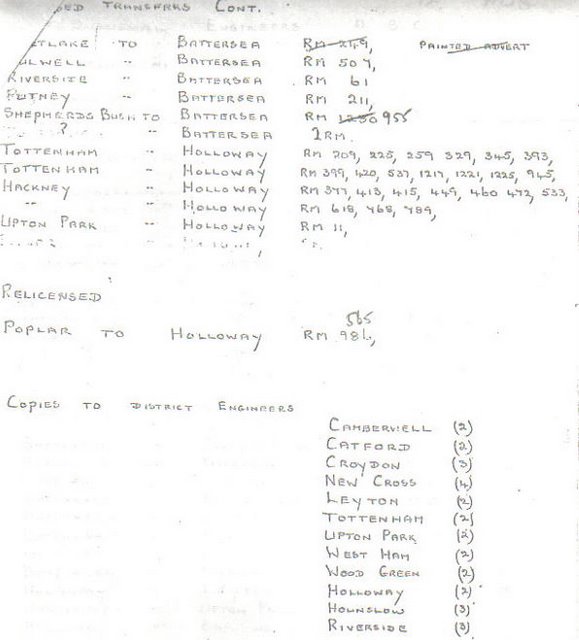 SED TRANSFERS CONT.
TLAKE TO BATTERSEA RM 249, PAINTED ADVERT
ULWELL " BATTERSEA RM 507,
RIVERSIDE " BATTERSEA RM 61
PUTNEY " BATTERSEA RM 211,
SHEPHERDS BUSH TO BATTERSEA RM 1250 955
? " BATTERSEA 1 RM.
TOTTENHAM " HOLLOWAY RM 209, 225, 259 329, 345, 393,
TOTTENHAM " HOLLOWAY RM 399, 420, 537, 1217, 1221, 1225, 945,
HACKNEY " HOLLOWAY RM 377, 413, 415, 449, 460 472, 533,
" " HOLLOWAY RM 618, 768, 789,
UPTON PARK " HOLLOWAY RM 11,
RELICENSED
565
POPLAR TO HOLLOWAY RM 986,
COPIES TO DISTRICT ENGINEERS
CAMBERWELL (2)
CATFORD (2)
CROYDON (3)
NEW CROSS (4)
LEYTON (2)
TOTTENHAM (2)
UPTON PARK (2)
WEST HAM (2)
WOOD GREEN (2)
HOLLOWAY (2)
HOUNSLOW (3)
RIVERSIDE (3)